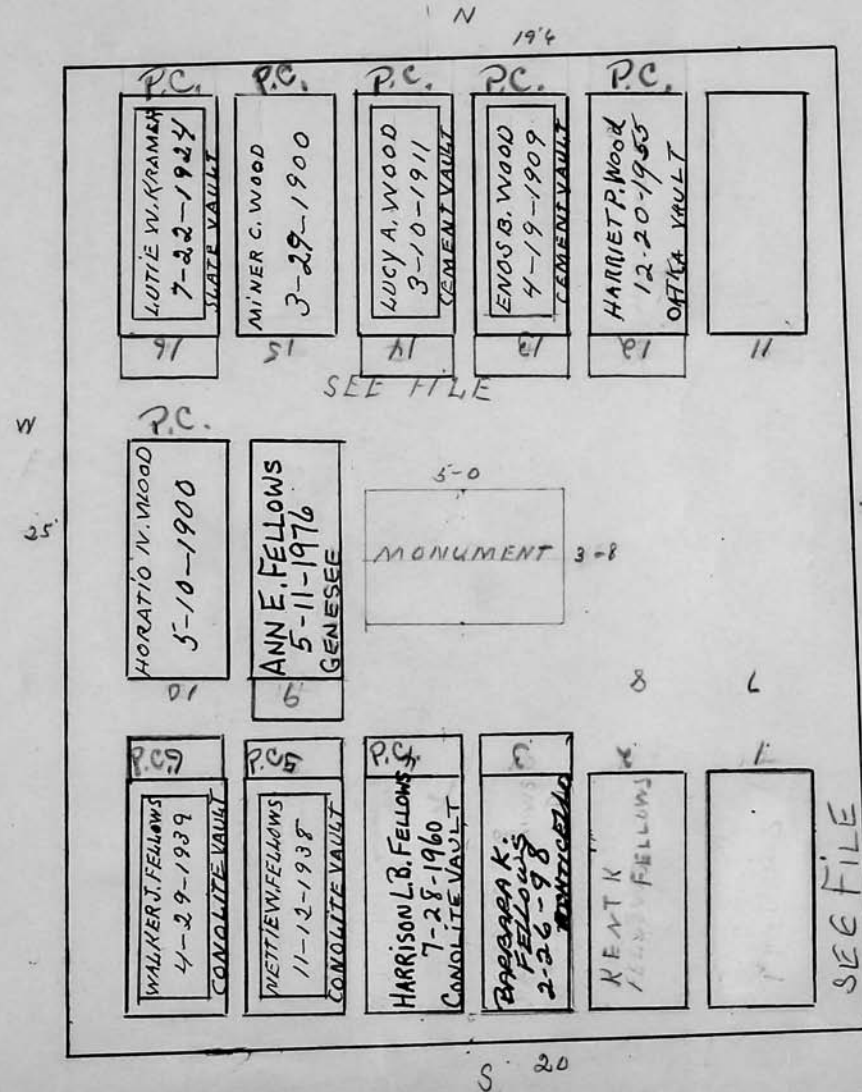 N
19'6
P.C.
P.C.
P.C.
P.C.
P.C.
LUTIE W. KRAMER
7-22-1924
SLATE VAULT
MINER C. WOOD
3-29-1900
LUCY A. WOOD
3-10-1911
CEMENT VAULT
ENOS B. WOOD
4-19-1909
CEMENT VAULT
HARRIET P. WOOD
12-20-1955
VAULT
16
15
14
13
12
11
SEE FILE
W
25'
P.C.
HORATIO N. WOOD
5-10-1900
ANN E. FELLOWS
5-11-1976
GENESEE
10
9
5-0
MONUMENT
3-8
8
7
P.C.
6
P.C.
5
P.C.
4
3
2
1
WALKER J. FELLOWS
4-29-1939
CONOLITE VAULT
NETTIE W. FELLOWS
11-12-1938
CONOLITE VAULT
HARRISON L.B. FELLOWS
7-28-1960
CONOLITE VAULT
BARBARA K.
FELLOWS
2-26-98
MONTICELLO
KENT K
FELLOWS
SEE FILE
S
20